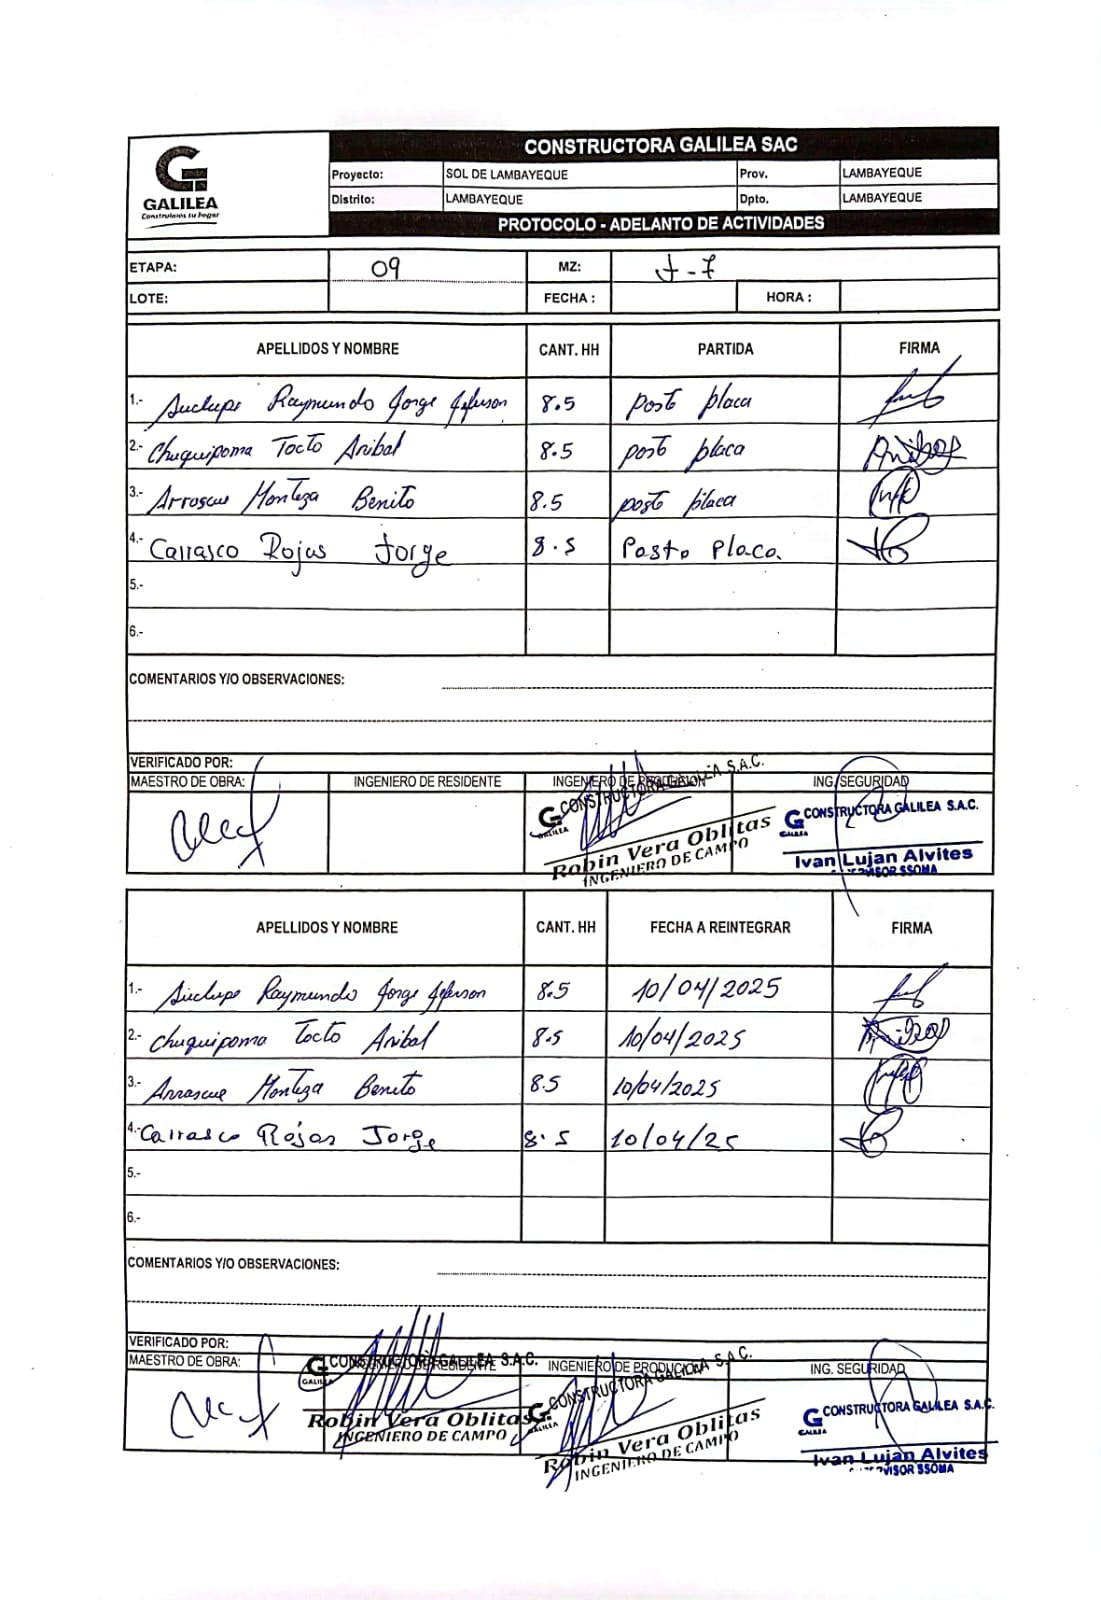 GALILEA
Construimos tu hogar
CONSTRUCTORA GALILEA SAC
Proyecto: SOL DE LAMBAYEQUE Prov. LAMBAYEQUE
Distrito: LAMBAYEQUE Dpto. LAMBAYEQUE
PROTOCOLO - ADELANTO DE ACTIVIDADES
ETAPA: 09 MZ: J-7
LOTE: FECHA : HORA :
APELLIDOS Y NOMBRE CANT. HH PARTIDA FIRMA
1.- Suclupe Raymundo Jorge Jeferson 8.5 posto placa
2.- Chuquipoma Tocto Anibal 8.5 posto placa Anibal
3.- Arrascue Monteza Benito 8.5 posto placa
4.- Carrasco Rojas Jorge 8.5 Posto Placa.
5.-
6.-
COMENTARIOS Y/O OBSERVACIONES:
VERIFICADO POR:
MAESTRO DE OBRA: INGENIERO DE RESIDENTE INGENIERO DE PRODUCION ING. SEGURIDAD
CONSTRUCTORA GALILEA S.A.C.
GALILEA
Robin Vera Oblitas
INGENIERO DE CAMPO
CONSTRUCTORA GALILEA S.A.C.
GALILEA
Ivan Lujan Alvites
SUPERVISOR SSOMA
APELLIDOS Y NOMBRE CANT. HH FECHA A REINTEGRAR FIRMA
1.- Suclupe Raymundo Jorge Jeferson 8.5 10/04/2025
2.- Chuquipoma Tocto Anibal 8.5 10/04/2025 Anibal
3.- Arrascue Monteza Benito 8.5 10/04/2025
4.- Carrasco Rojas Jorge 8.5 10/04/25
5.-
6.-
COMENTARIOS Y/O OBSERVACIONES:
VERIFICADO POR:
MAESTRO DE OBRA: INGENIERO DE RESIDENTE INGENIERO DE PRODUCION ING. SEGURIDAD
CONSTRUCTORA GALILEA S.A.C.
GALILEA
Robin Vera Oblitas
INGENIERO DE CAMPO
CONSTRUCTORA GALILEA S.A.C.
GALILEA
Robin Vera Oblitas
INGENIERO DE CAMPO
CONSTRUCTORA GALILEA S.A.C.
GALILEA
Ivan Lujan Alvites
SUPERVISOR SSOMA